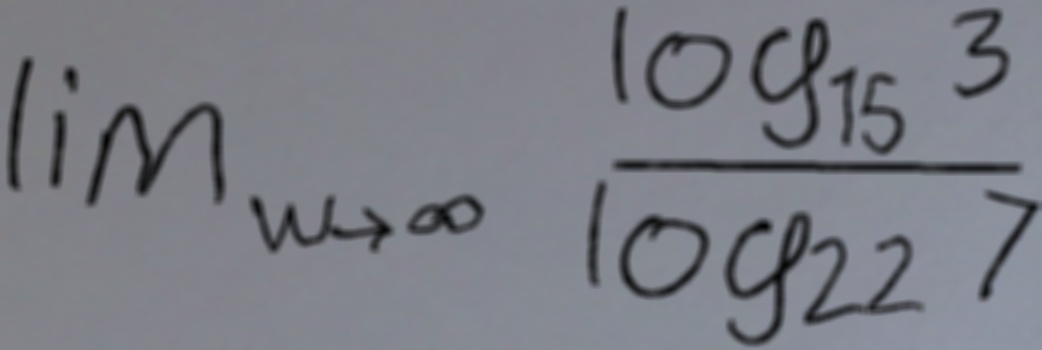 lim_{w→∞} \frac{log_{15} 3}{log_{22} 7}